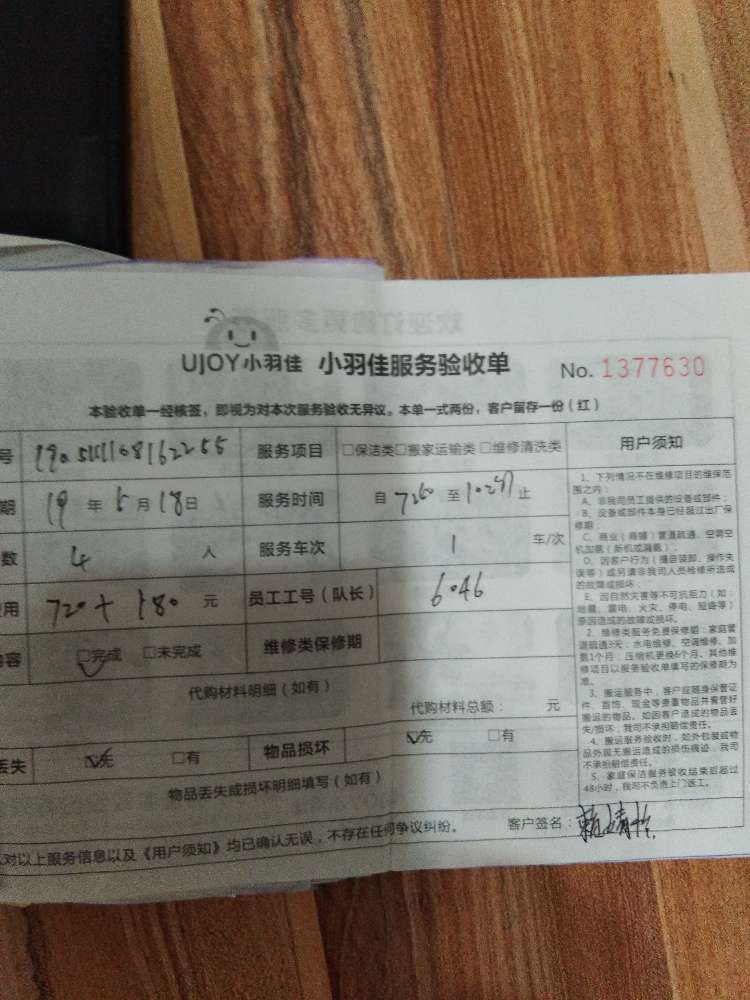 UJOY小羽佳 小羽佳服务验收单 No. 1377630
本验收单一经核签，即视为对本次服务验收无异议。本单一式两份，客户留存一份（红）
号 服务项目 □保洁类□搬家运输类□维修清洗类 用户须知
期 19 年 5 月 18 日 服务时间 自 至 止
数 4 人 服务车次 1 车/次
用 720+180 元 员工工号（队长） 6046
内容 □完成 □未完成 维修类保修期
代购材料明细（如有）
代购材料总额： 元
丢失 □无 □有 物品损坏 □无 □有
物品丢失或损坏明细填写（如有）
对以上服务信息以及《用户须知》均已确认无误，不存在任何争议纠纷。 客户签名：
1、下列情况不在维修项目的维保范
围之内：
A、非我司员工提供的设备或部件；
B、设备或部件本身已经超过出厂保
修期；
C、商业（商铺）管道疏通、空调空
机加氨（新机或漏氨）；
D、因客户行为（擅自装卸、操作失
误等）或另请非我司人员检修所造成
的故障或损坏；
E、因自然灾害等不可抗原力（如：
地震、雷电、火灾、停电、短路等）
原因造成的故障或损坏。
2、维修类服务免费保修期：家庭管
道疏通3天；水电维修、空调维修、加
氨1个月；压缩机更换6个月。其他维
修项目以服务验收单填写的保修期为
准。
3、搬运服务中，客户应随身保管证
件、首饰、现金等贵重物品并看管好
搬运的物品。如因客户造成的物品丢
失/损坏，我司不承担赔偿责任。
4、搬运服务验收时，如外包装或物
品外观无搬运造成的损伤痕迹，我司
不承担赔偿责任。
5、家庭保洁服务验收结束后超过
48小时，我司不负责上门返工。